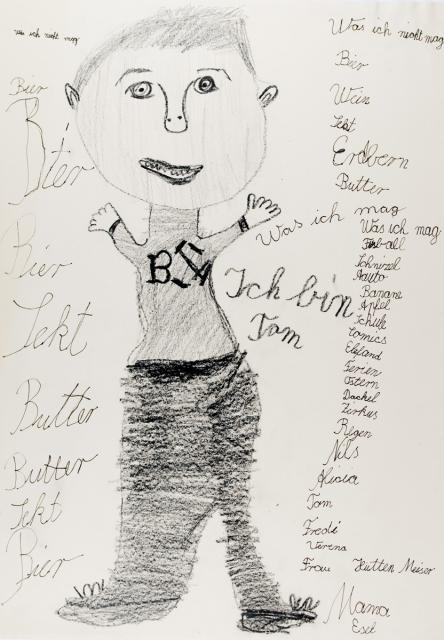 was ich nicht mag
Bier
Bier
Bier
Sekt
Butter
Butter
Sekt
Bier
Ich bin
Tom
Was ich nicht mag
Bier
Wein
Sekt
Erdbern
Butter
Was ich mag
Was ich mag
Fußball
Schnizel
Aauto
Banane
Apfel
Schule
Comics
Elefand
Ferien
Ostern
Dackel
Zirkus
Regen
Nils
Alicia
Tom
Fredi
Verena
Frau Hütten Meiser
Mama
Esel